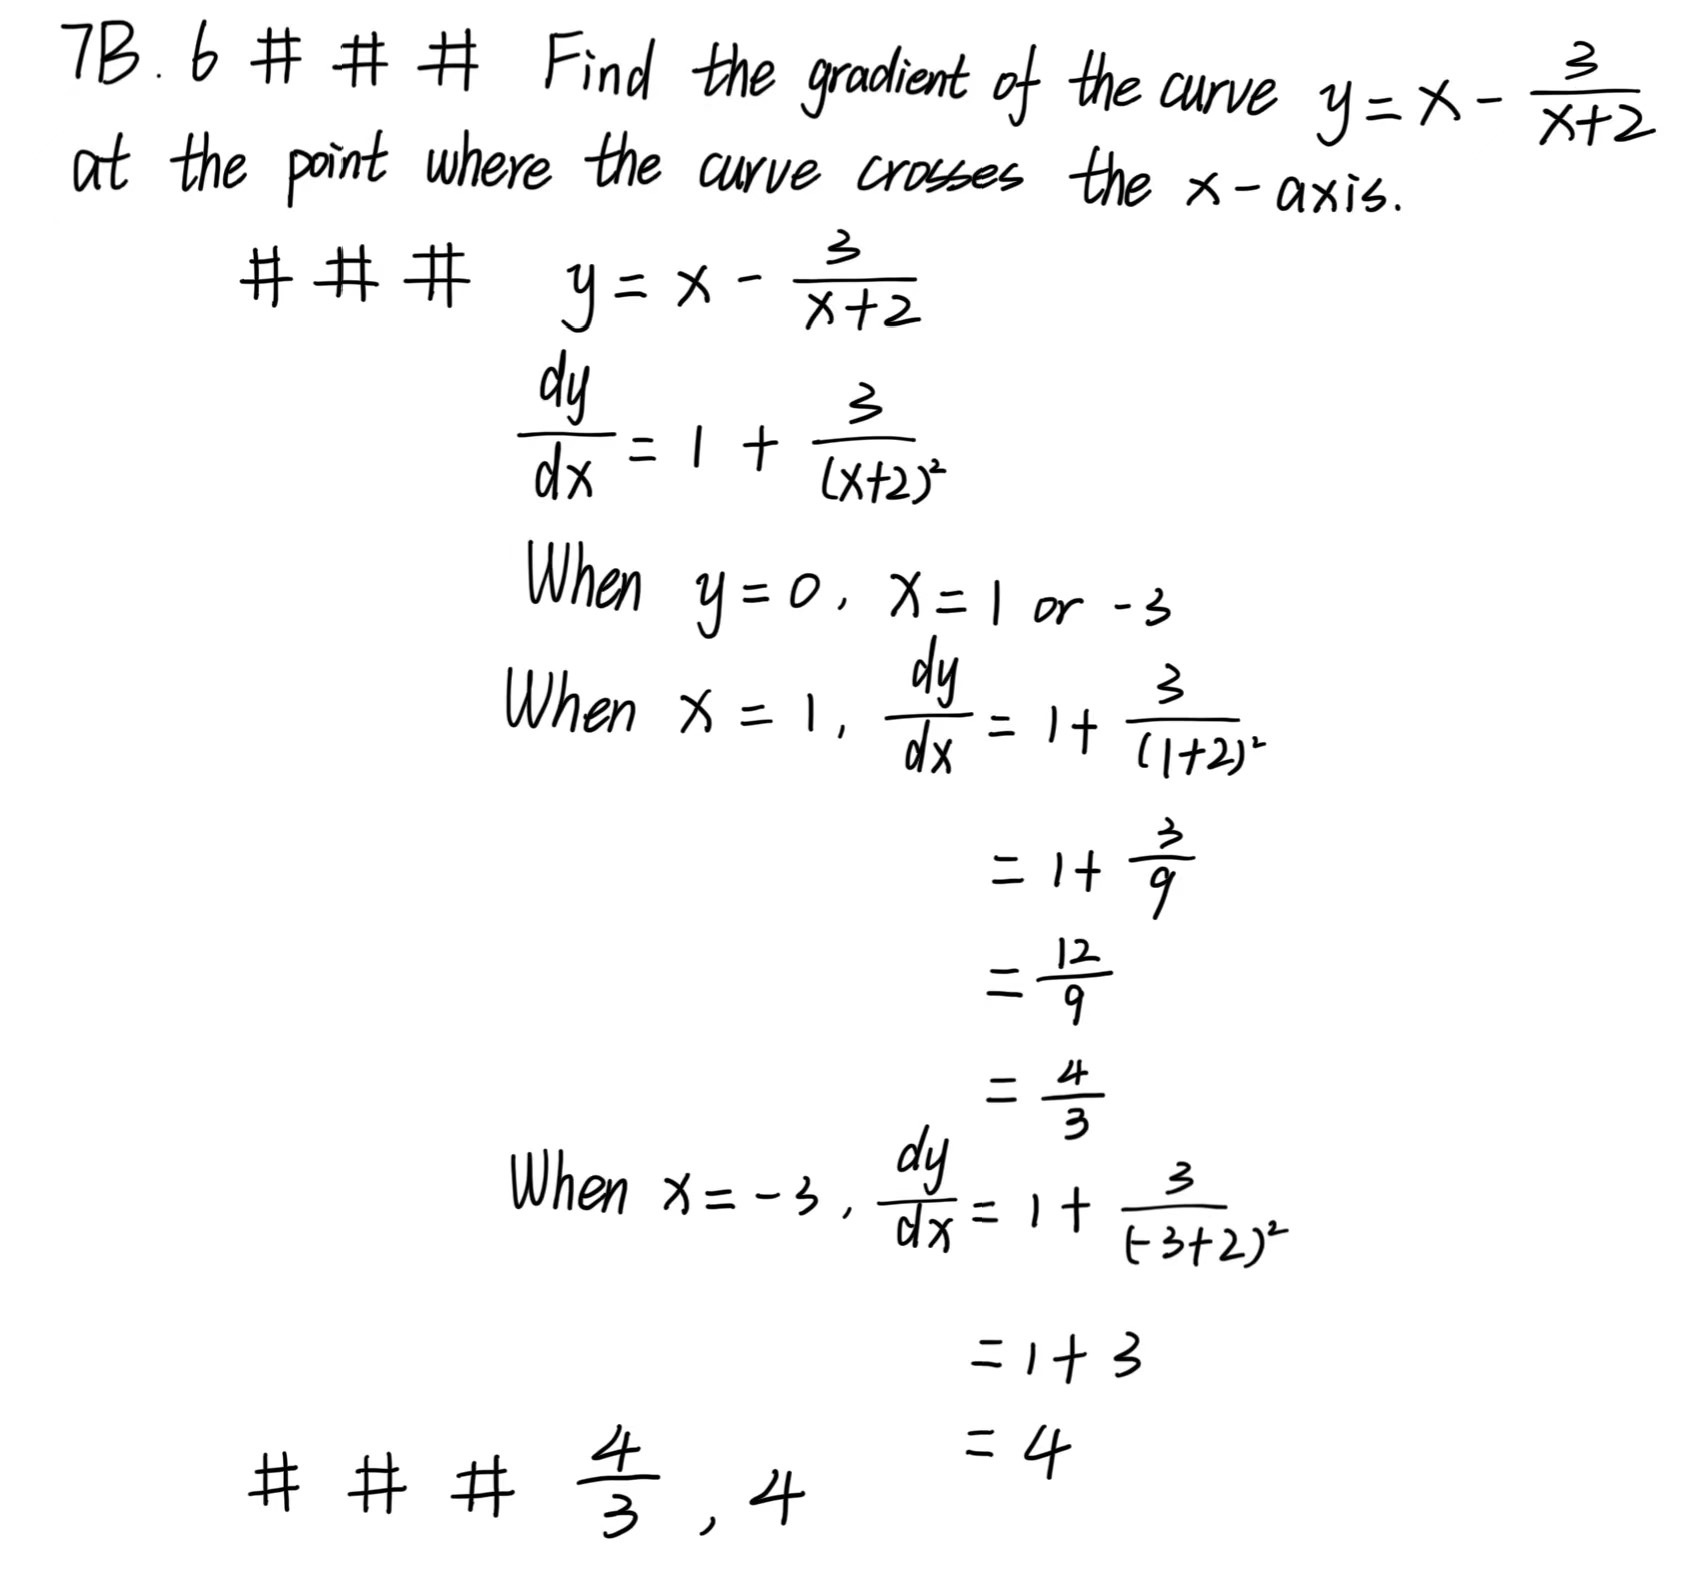 7B. 6 # # # Find the gradient of the curve y = x - \frac{3}{x+2}
at the point where the curve crosses the x-axis.
# # # y = x - \frac{3}{x+2}
\frac{dy}{dx} = 1 + \frac{3}{(x+2)^2}
When y = 0, x = 1 or -3
When x = 1, \frac{dy}{dx} = 1 + \frac{3}{(1+2)^2}
= 1 + \frac{3}{9}
= \frac{12}{9}
= \frac{4}{3}
When x = -3, \frac{dy}{dx} = 1 + \frac{3}{(-3+2)^2}
= 1 + 3
= 4
# # # \frac{4}{3}, 4